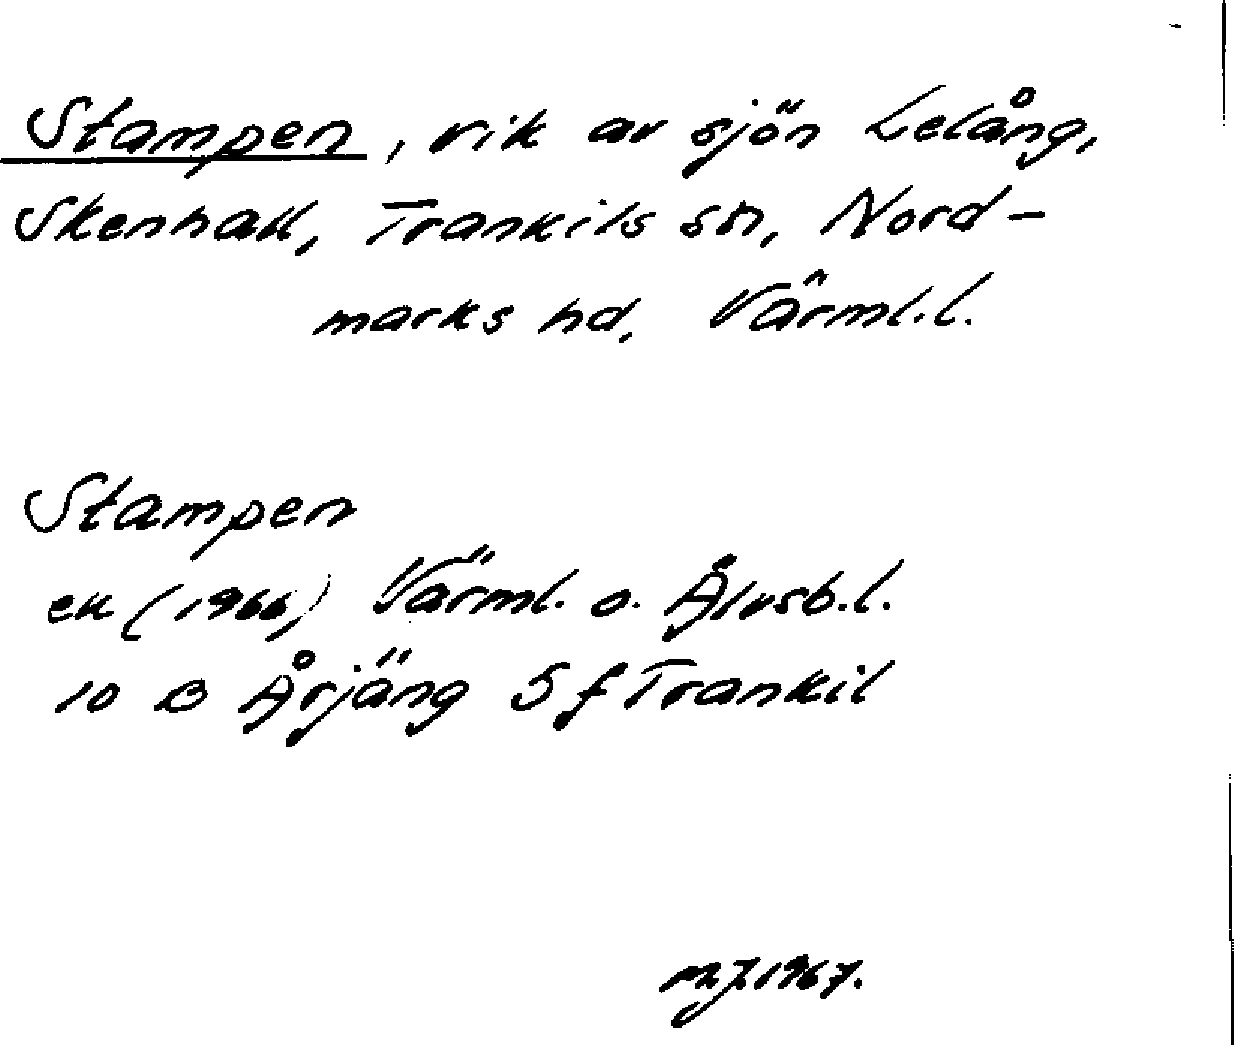 Stampen, vik av sjön Lelång,
Skenhall, Trankils sn, Nord-
marks hd, Värml.l.
Stampen
ek (1966) Värml. o. Älvsb.l.
10 B Årjäng S f Trankil
1967.